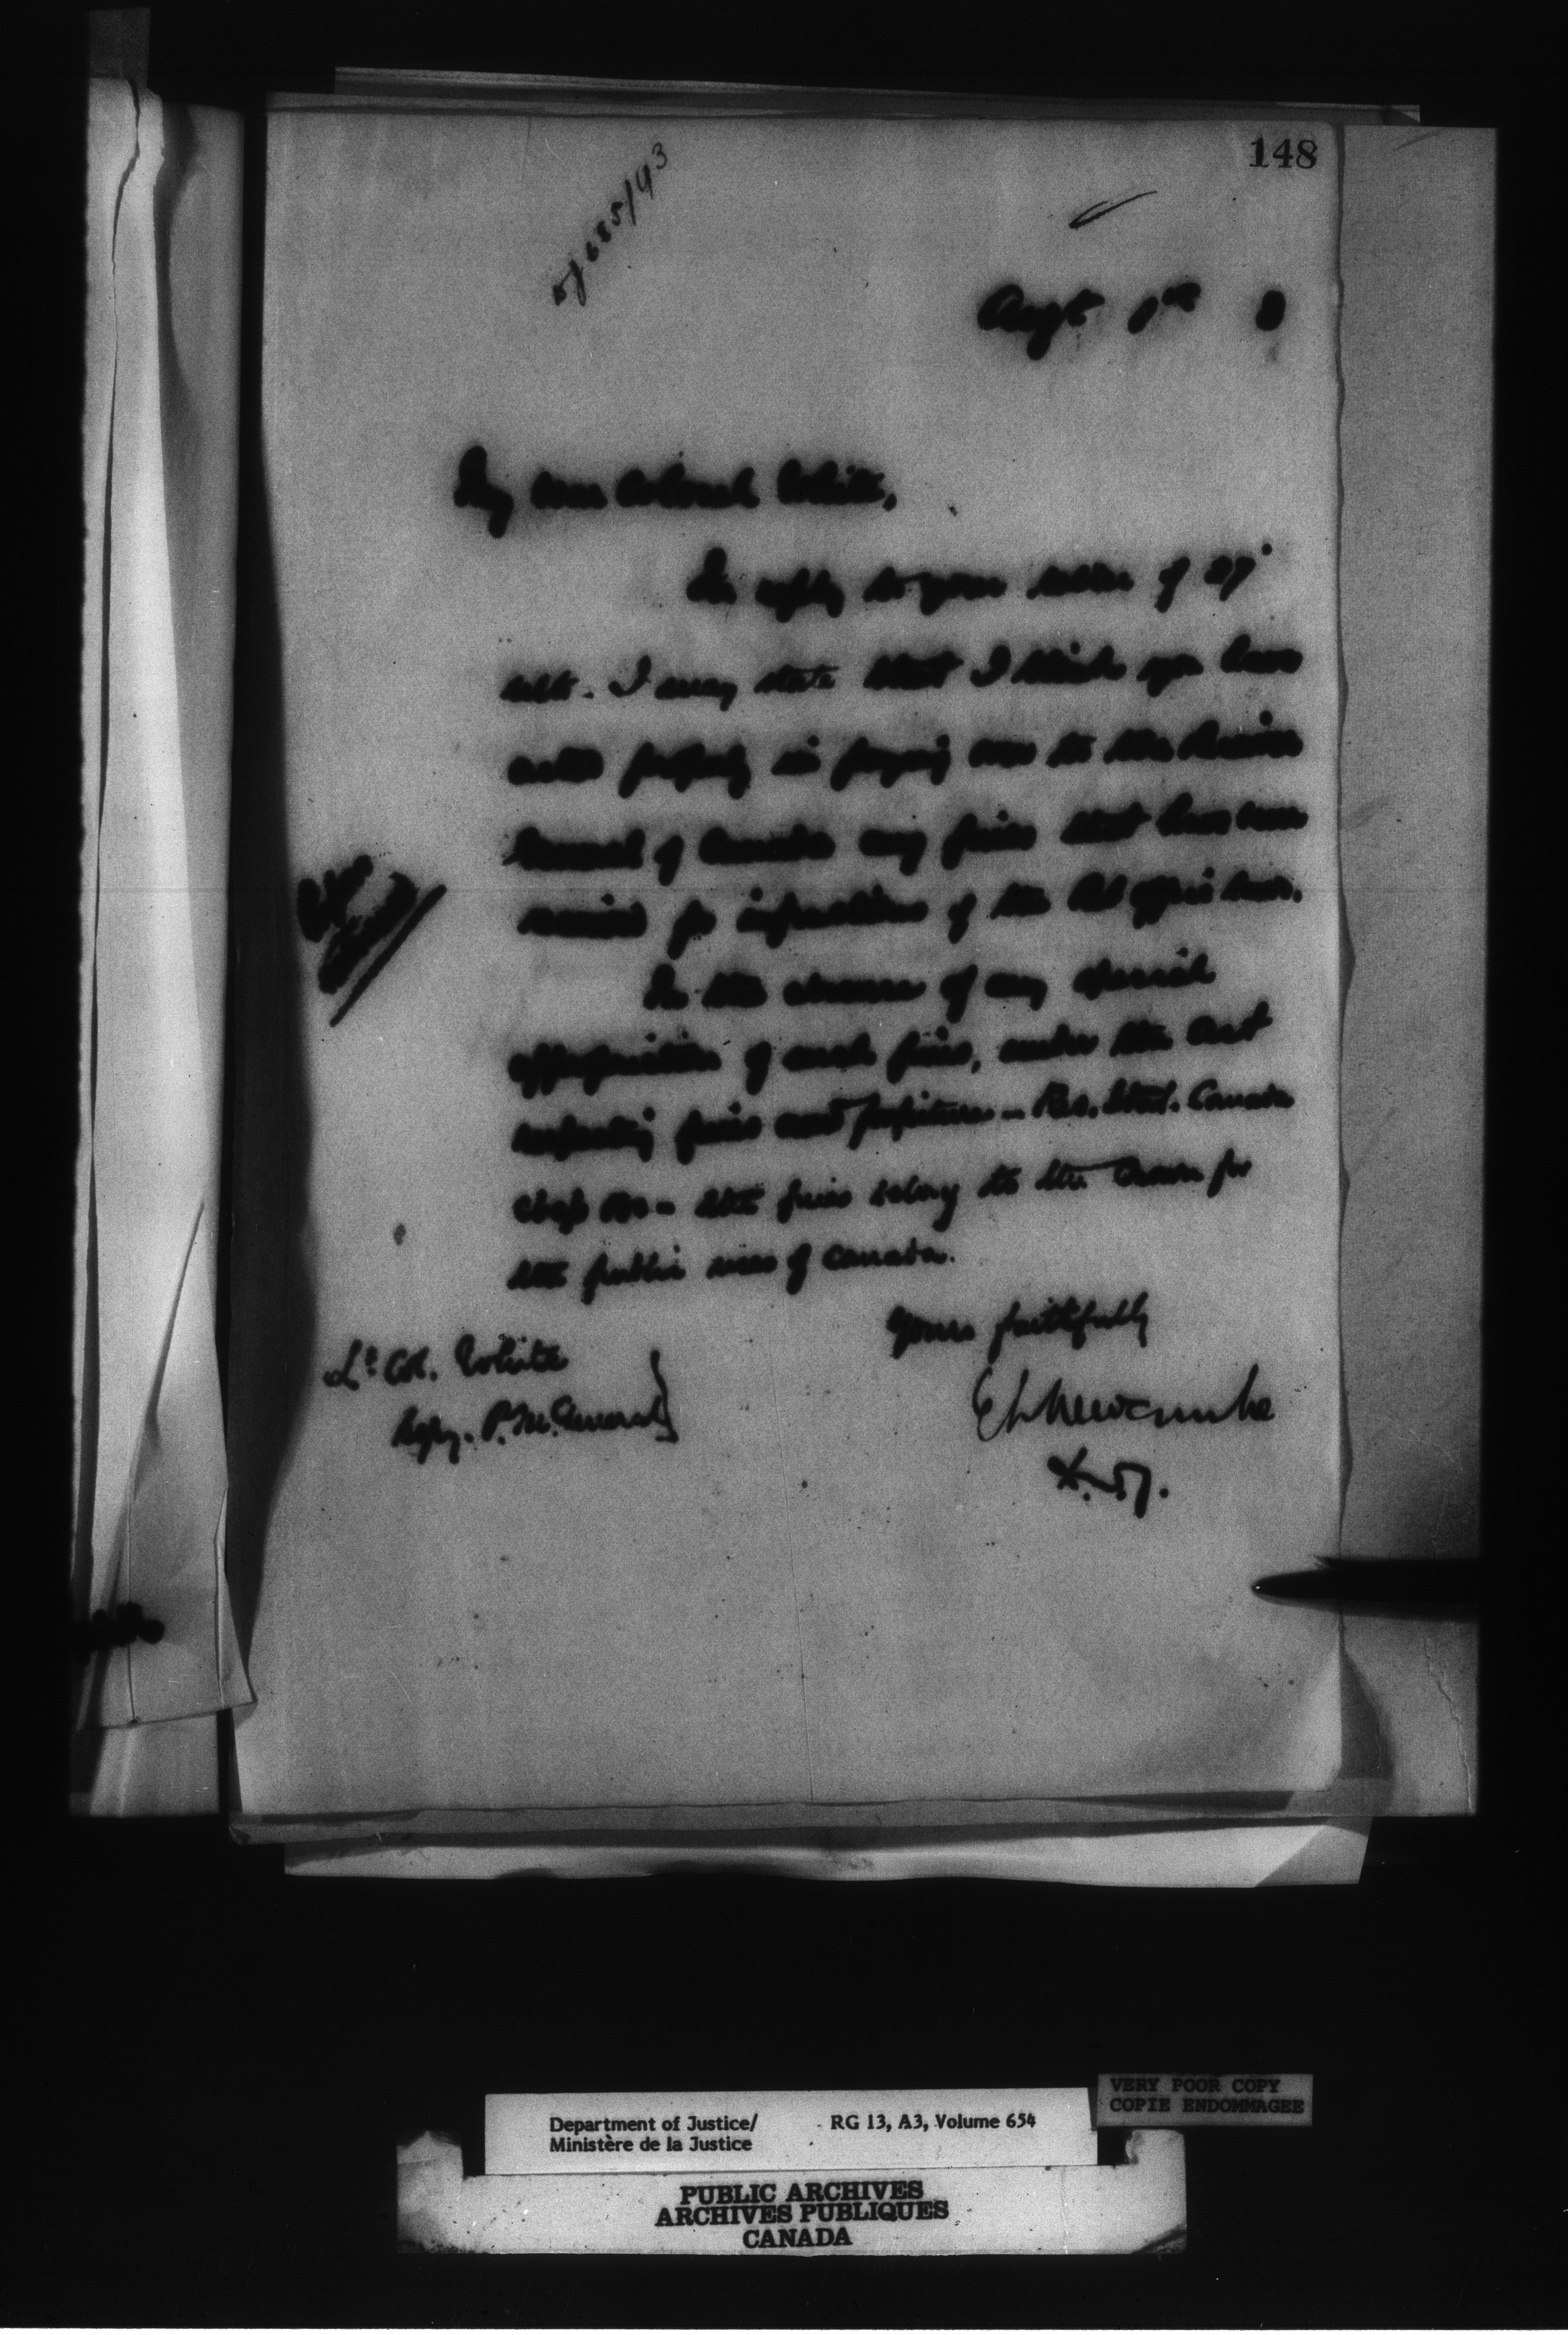 148
Augt
My dear Colonel White,
In reply to your letter of 27"
ulto. I may state that I think you have
acted properly in paying over to the Receiver
General of Canada any fines that have been
received for infractions of the Post Office Law.
In the absence of any special
appropriation of such fines, under the Act
respecting fines and forfeitures - Rev. Stat. Canada
Chap 180 - the fines belong to the Crown for
the public uses of Canada.
Yours faithfully
Lt. Col. White
Depy. P. M. General
E L Newcombe
D.M.J.
VERY POOR COPY
COPIE ENDOMMAGEE
Department of Justice/ RG 13, A3, Volume 654
Ministère de la Justice
PUBLIC ARCHIVES
ARCHIVES PUBLIQUES
CANADA